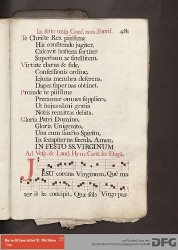 In festo unius Conf. non Pontif. 481
Te Christe Rex piissime
Hic confitendo jugiter,
Calcavit hostem fortiter
Superbum ac satellitem.
Virtute clarus & fide,
Confessionis ordine,
Jejuna membra deferens,
Dapes supernas obtinet.
Proinde te piissime
Precamur omnes supplices,
Ut hujus almi gratia
Nobis remittas debita.
Gloria Patri Domino,
Gloria Unigenito,
Una cum sancto Spiritu,
In sempiterna secula. Amen.
IN FESTO SS. VIRGINUM
Ad Vesp. & Laud. Hym. Cant. in Dupl.
JESU corona Virginum, Quē ma
ter il la concipit, Quæ sola Virgo par-
DFG